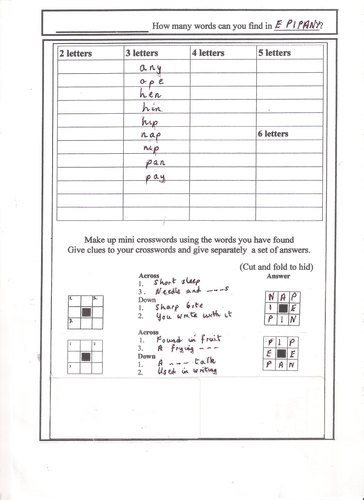 How many words can you find in E PIPANY?
2 letters 3 letters 4 letters 5 letters
any
ape
hen
hin
hip
nap 6 letters
nip
pan
pay
Make up mini crosswords using the words you have found
Give clues to your crosswords and give separately a set of answers.
(Cut and fold to hid)
Across Answer
1. Short sleep
3. Needle and ---s
Down
1. Sharp bite
2. You write with it
1. 2.
3.
N A P
I E
P I N
Across
1. Found in fruit
3. A frying ---
Down
1. A --- talk
2. Used in writing
P I P
E E
P A N